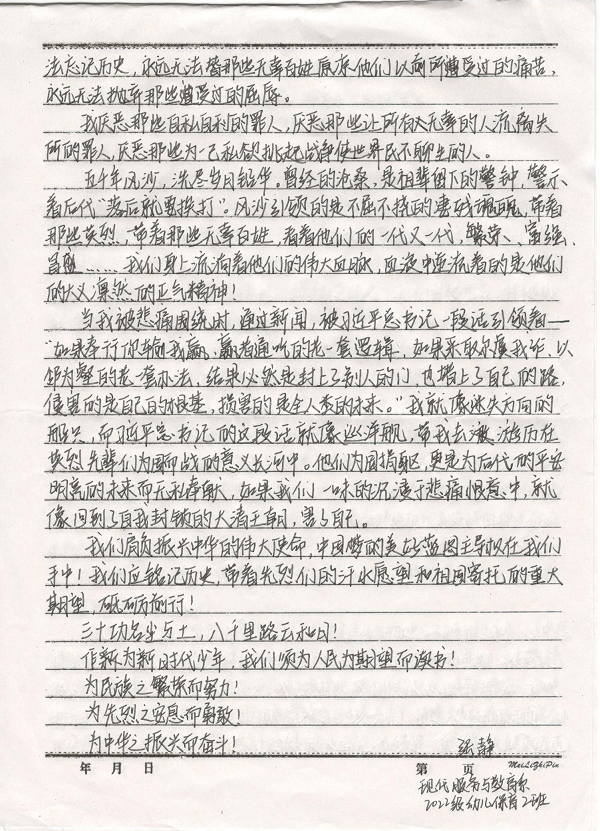 法忘记历史，永远无法替那些无辜百姓原凉他们以前所曾受过的痛苦，
永远无法抛弃那些遭受过的屈辱。
我厌恶那些自私自利的罪人，厌恶那些让所有无辜的人流离失
所的罪人，厌恶那些为一己私欲挑起战争使世界民不聊生的人。
五千年风沙，洗尽岁月铅华。曾经的沧桑，是祖辈留下的警钟，警示
着后代“落后就要挨打”。风沙引领的是不屈不挠的忠魂，带着
那些英烈，带着那些无辜百姓，看着他们的一代又一代，繁荣、富强、
昌盛……我们身上流淌着他们的伟大血脉，血液中逆流着的是他们
的大义凛然的正气精神！
当我被悲痛围绕时，通过新闻，被习近平总书记一段话引领着——
“如果奉行你输我赢、赢者通吃的老一套逻辑，如果采取尔虞我诈、以
邻为壑的老一套办法，结果必然是封上了别人的门，也堵上了自己的路，
侵害的是自己的根基，损害的是全人类的未来。”我就像迷失方向的
船只，而习近平总书记的这段话就像巡洋舰，带我去激游历在
英烈先辈们为国而战的意义长河中。他们为国捐躯，更是为后代的平安
明亮的未来而无私奉献，如果我们一味的沉浸于悲痛恨意中，就
像回到了自我封锁的大清王朝，害了自己。
我们肩负振兴中华的伟大使命，中国梦的美好蓝图主导权在我们
手中！我们应铭记历史，带着先烈们的汗水愿望和祖国寄托的重大
期望，砥砺前行！
三十功名尘与土，八千里路云和月！
作新为新时代少年，我们须为人民为期望而读书！
为民族之繁荣而努力！
为先烈之安息而勇敢！
为中华之振兴而奋斗！
张静
年 月 日 第 页 MeiLiZhiPin
现代服务与教育系
2022级幼儿保育2班